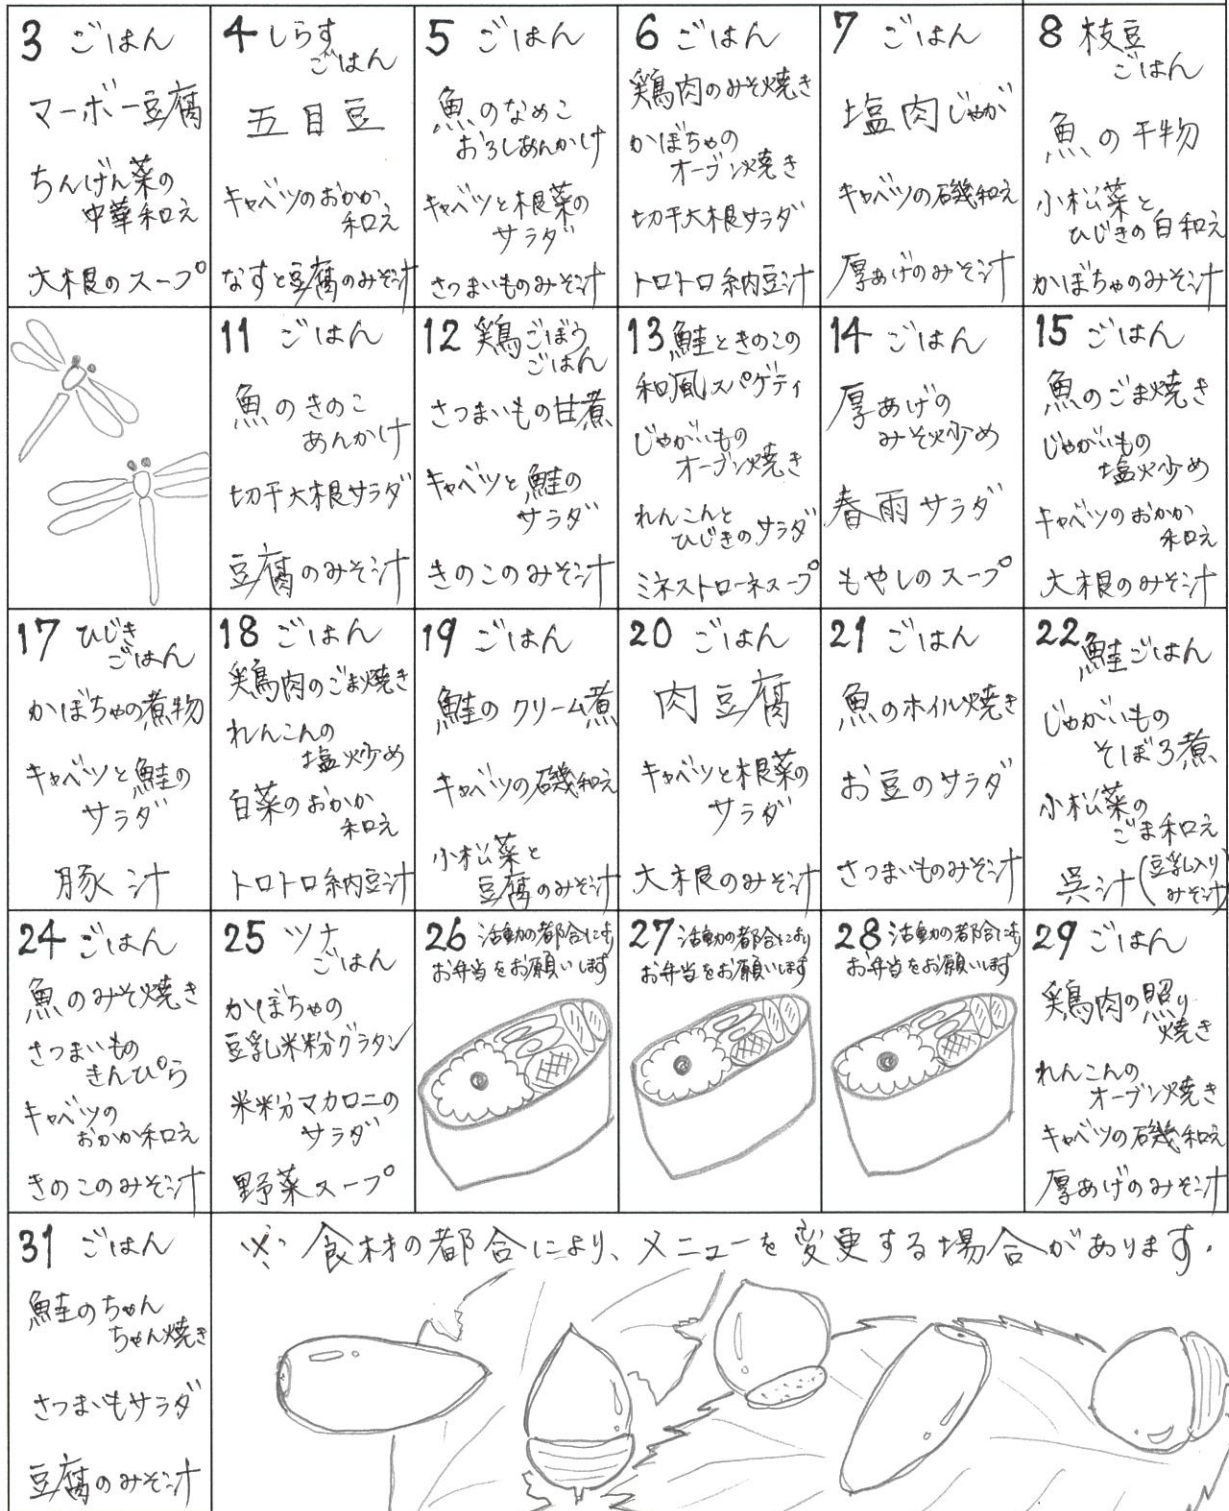 3 ごはん
マーボー豆腐
ちんげん菜の
中華和え
大根のスープ
4 しらす
ごはん
五目豆
キャベツのおかか
和え
なすと豆腐のみそ汁
5 ごはん
魚のなめこ
おろしあんかけ
キャベツと根菜の
サラダ
さつまいものみそ汁
6 ごはん
鶏肉のみそ焼き
かぼちゃの
オーブン焼き
切干大根サラダ
トロトロ納豆汁
7 ごはん
塩肉じゃが
キャベツの磯和え
厚あげのみそ汁
8 枝豆
ごはん
魚の干物
小松菜と
ひじきの白和え
かぼちゃのみそ汁
11 ごはん
魚のきのこ
あんかけ
切干大根サラダ
豆腐のみそ汁
12 鶏ごぼう
ごはん
さつまいもの甘煮
キャベツと鮭の
サラダ
きのこのみそ汁
13 鮭ときのこの
和風スパゲティ
じゃがいもの
オーブン焼き
れんこんと
ひじきのサラダ
ミネストローネスープ
14 ごはん
厚あげの
みそ炒め
春雨サラダ
もやしのスープ
15 ごはん
魚のごま焼き
じゃがいもの
塩炒め
キャベツのおかか
和え
大根のみそ汁
17 ひじき
ごはん
かぼちゃの煮物
キャベツと鮭の
サラダ
豚汁
18 ごはん
鶏肉のごま焼き
れんこんの
塩炒め
白菜のおかか
和え
トロトロ納豆汁
19 ごはん
鮭のクリーム煮
キャベツの磯和え
小松菜と
豆腐のみそ汁
20 ごはん
肉豆腐
キャベツと根菜の
サラダ
大根のみそ汁
21 ごはん
魚のホイル焼き
お豆のサラダ
さつまいものみそ汁
22 鮭ごはん
じゃがいもの
そぼろ煮
小松菜の
ごま和え
呉汁(豆乳入り
みそ汁)
24 ごはん
魚のみそ焼き
さつまいも
きんぴら
キャベツの
おかか和え
きのこのみそ汁
25 ツナ
ごはん
かぼちゃの
豆乳米粉グラタン
米粉マカロニの
サラダ
野菜スープ
26 活動の都合により
お弁当をお願いします
27 活動の都合により
お弁当をお願いします
28 活動の都合により
お弁当をお願いします
29 ごはん
鶏肉の照り
焼き
れんこんの
オーブン焼き
キャベツの磯和え
厚あげのみそ汁
31 ごはん
鮭のちゃん
ちゃん焼き
さつまいもサラダ
豆腐のみそ汁
※ 食材の都合により、メニューを変更する場合があります。